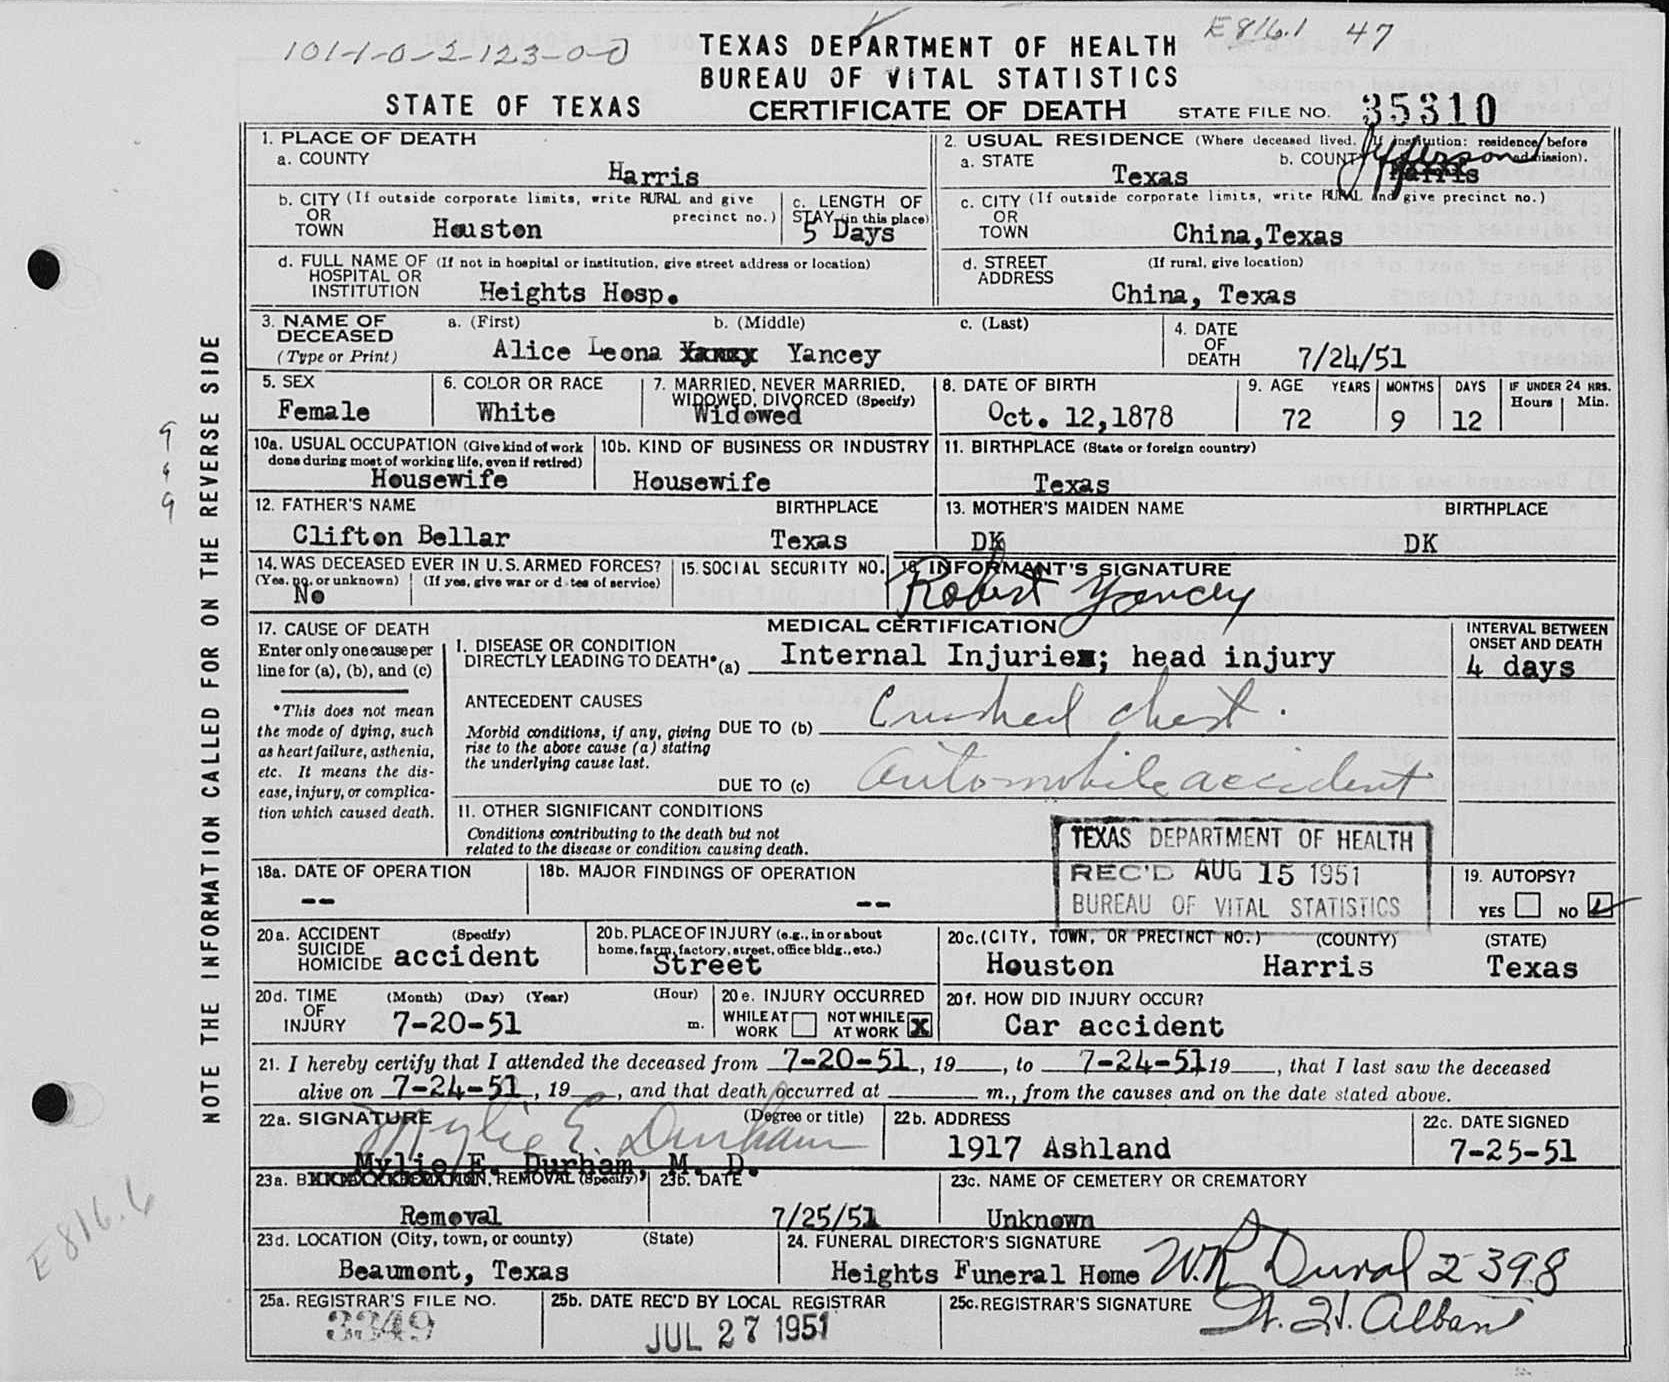 101-1-0-2-123-0-0
E816.1 47
TEXAS DEPARTMENT OF HEALTH
BUREAU OF VITAL STATISTICS
STATE OF TEXAS CERTIFICATE OF DEATH STATE FILE NO. 35310
1. PLACE OF DEATH
a. COUNTY
Harris
2. USUAL RESIDENCE (Where deceased lived. If institution: residence before admission).
a. STATE Texas b. COUNTY Harris Jefferson
b. CITY (If outside corporate limits, write RURAL and give
OR precinct no.)
TOWN Houston
c. LENGTH OF
STAY (in this place)
5 Days
c. CITY (If outside corporate limits, write RURAL and give precinct no.)
OR
TOWN China,Texas
d. FULL NAME OF (If not in hospital or institution, give street address or location)
HOSPITAL OR
INSTITUTION Heights Hosp.
d. STREET (If rural, give location)
ADDRESS
China, Texas
3. NAME OF a. (First) b. (Middle) c. (Last)
DECEASED
(Type or Print) Alice Leona Yancy Yancey
4. DATE
OF
DEATH 7/24/51
5. SEX
Female
6. COLOR OR RACE
White
7. MARRIED, NEVER MARRIED,
WIDOWED, DIVORCED (Specify)
Widowed
8. DATE OF BIRTH
Oct. 12,1878
9. AGE YEARS MONTHS DAYS IF UNDER 24 HRS.
Hours Min.
72 9 12
10a. USUAL OCCUPATION (Give kind of work
done during most of working life, even if retired)
Housewife
10b. KIND OF BUSINESS OR INDUSTRY
Housewife
11. BIRTHPLACE (State or foreign country)
Texas
12. FATHER'S NAME BIRTHPLACE
Clifton Bellar Texas
13. MOTHER'S MAIDEN NAME BIRTHPLACE
DK DK
14. WAS DECEASED EVER IN U.S. ARMED FORCES?
(Yes, no, or unknown) (If yes, give war or dates of service)
No
15. SOCIAL SECURITY NO.
16. INFORMANT'S SIGNATURE
Robert Yancey
17. CAUSE OF DEATH
Enter only one cause per
line for (a), (b), and (c)
*This does not mean
the mode of dying, such
as heart failure, asthenia,
etc. It means the dis-
ease, injury, or complica-
tion which caused death.
MEDICAL CERTIFICATION
I. DISEASE OR CONDITION
DIRECTLY LEADING TO DEATH* (a) Internal Injuries; head injury
INTERVAL BETWEEN
ONSET AND DEATH
4 days
ANTECEDENT CAUSES
Morbid conditions, if any, giving
rise to the above cause (a) stating
the underlying cause last.
DUE TO (b) Crushed chest.
DUE TO (c) Automobile accident
II. OTHER SIGNIFICANT CONDITIONS
Conditions contributing to the death but not
related to the disease or condition causing death.
TEXAS DEPARTMENT OF HEALTH
REC'D AUG 15 1951
BUREAU OF VITAL STATISTICS
18a. DATE OF OPERATION
--
18b. MAJOR FINDINGS OF OPERATION
--
19. AUTOPSY?
YES NO
20a. ACCIDENT (Specify)
SUICIDE
HOMICIDE accident
20b. PLACE OF INJURY (e.g., in or about
home, farm, factory, street, office bldg., etc.)
Street
20c. (CITY, TOWN, OR PRECINCT NO.) (COUNTY) (STATE)
Houston Harris Texas
20d. TIME (Month) (Day) (Year) (Hour)
OF
INJURY 7-20-51 m.
20e. INJURY OCCURRED
WHILE AT WORK NOT WHILE AT WORK X
20f. HOW DID INJURY OCCUR?
Car accident
21. I hereby certify that I attended the deceased from 7-20-51, 19, to 7-24-51, 19, that I last saw the deceased
alive on 7-24-51, 19, and that death occurred at m., from the causes and on the date stated above.
22a. SIGNATURE (Degree or title)
Mylie E. Durham
Mylie E. Durham, M. D.
22b. ADDRESS
1917 Ashland
22c. DATE SIGNED
7-25-51
23a. REMOVAL (Specify)
Removal
23b. DATE
7/25/51
23c. NAME OF CEMETERY OR CREMATORY
Unknown
23d. LOCATION (City, town, or county) (State)
Beaumont, Texas
24. FUNERAL DIRECTOR'S SIGNATURE
Heights Funeral Home W.R. Duval 2398
25a. REGISTRAR'S FILE NO.
3349
25b. DATE REC'D BY LOCAL REGISTRAR
JUL 27 1951
25c. REGISTRAR'S SIGNATURE
NOTE THE INFORMATION CALLED FOR ON THE REVERSE SIDE
E816.6